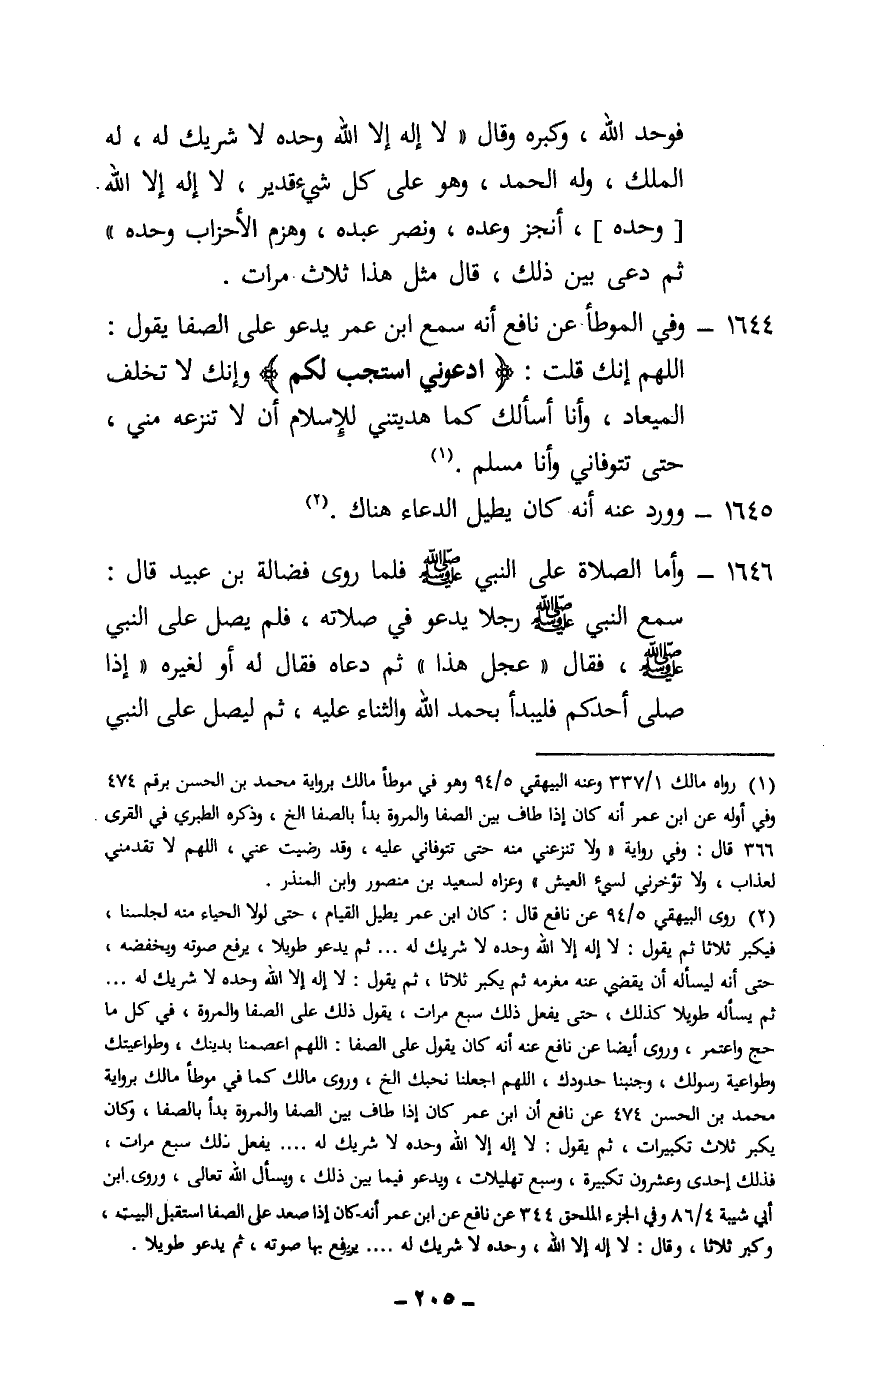 فوحد الله ، وكبره وقال « لا إله إلا الله وحده لا شريك له ، له
الملك ، وله الحمد ، وهو على كل شيء قدير ، لا إله إلا الله
[ وحده ] ، أنجز وعده ، ونصر عبده ، وهزم الأحزاب وحده »
ثم دعى بين ذلك ، قال مثل هذا ثلاث مرات .
١٦٤٤ – وفي الموطأ عن نافع أنه سمع ابن عمر يدعو على الصفا يقول :
اللهم إنك قلت : ﴿ ادعوني استجب لكم ﴾ وإنك لا تخلف
الميعاد ، وأنا أسألك كما هديتني للإسلام أن لا تنزعه مني ،
حتى تتوفاني وأنا مسلم .(١)
١٦٤٥ – وورد عنه أنه كان يطيل الدعاء هناك .(٢)
١٦٤٦ – وأما الصلاة على النبي ﷺ فلما روى فضالة بن عبيد قال :
سمع النبي ﷺ رجلا يدعو في صلاته ، فلم يصل على النبي
ﷺ ، فقال « عجل هذا » ثم دعاه فقال له أو لغيره « إذا
صلى أحدكم فليبدأ بحمد الله والثناء عليه ، ثم ليصل على النبي
(١) رواه مالك ٣٣٧/١ وعنه البيهقي ٩٤/٥ وهو في موطأ مالك برواية محمد بن الحسن برقم ٤٧٤
وفي أوله عن ابن عمر أنه كان إذا طاف بين الصفا والمروة بدأ بالصفا الخ ، وذكره الطبري في القرى
٣٦٦ قال : وفي رواية « ولا تنزعني منه حتى تتوفاني عليه ، وقد رضيت عني ، اللهم لا تقدمني
لعذاب ، ولا تؤخرني لسيء العيش » وعزاه لسعيد بن منصور وابن المنذر .
(٢) روى البيهقي ٩٤/٥ عن نافع قال : كان ابن عمر يطيل القيام ، حتى لولا الحياء منه لجلسنا ،
فيكبر ثلاثا ثم يقول : لا إله إلا الله وحده لا شريك له ... ثم يدعو طويلا ، يرفع صوته ويخفضه ،
حتى أنه ليسأله أن يقضي عنه مغرمه ثم يكبر ثلاثا ، ثم يقول : لا إله إلا الله وحده لا شريك له ...
ثم يسأله طويلا كذلك ، حتى يفعل ذلك سبع مرات ، يقول ذلك على الصفا والمروة ، في كل ما
حج واعتمر ، وروى أيضا عن نافع عنه أنه كان يقول على الصفا : اللهم اعصمنا بدينك ، وطواعيتك
وطواعية رسولك ، وجنبنا حدودك ، اللهم اجعلنا نحبك الخ ، وروى مالك كما في موطأ مالك برواية
محمد بن الحسن ٤٧٤ عن نافع أن ابن عمر كان إذا طاف بين الصفا والمروة بدأ بالصفا ، وكان
يكبر ثلاث تكبيرات ، ثم يقول : لا إله إلا الله وحده لا شريك له .... يفعل ذلك سبع مرات ،
فذلك إحدى وعشرون تكبيرة ، وسبع تهليلات ، ويدعو فيما بين ذلك ، ويسأل الله تعالى ، وروى ابن
أبي شيبة ٨٦/٤ وفي الجزء الملحق ٣٤٤ عن نافع عن ابن عمر أنه كان إذا صعد على الصفا استقبل البيت ،
وكبر ثلاثا ، وقال : لا إله إلا الله ، وحده لا شريك له .... يرفع بها صوته ، ثم يدعو طويلا .
– ٢٠٥ –